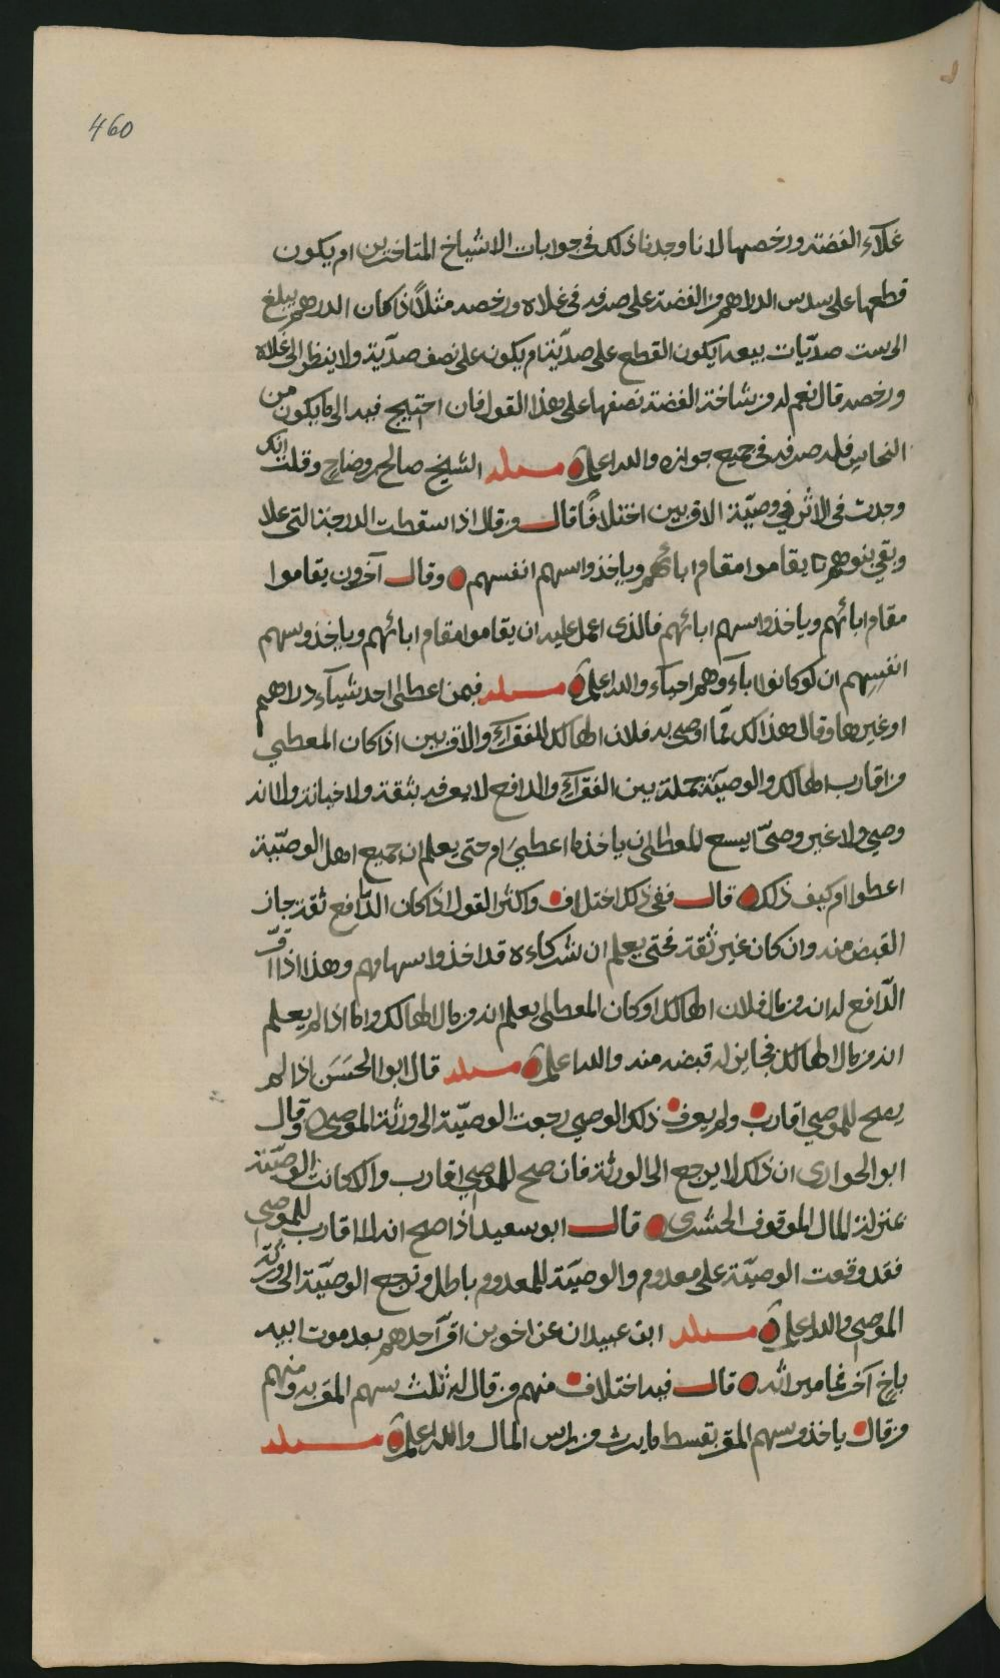 460
غلاء الفضة ورخصها لانا وجدنا ذلك في جوابات الاشياخ المتاخرين ام يكون
قطعها على سدس الدراهم من الفضة على صرفه في غلاه ورخصه مثلاً اذا كان الدرهم يبلغ
الى ست صدّيات بيعه ايكون القطع على صدّية ام يكون على نصف صدّية ولا ينظر الى غلاه
ورخصه قال نعم له من شاخة الفضة نصفها على هذا القول فان احتيج فيه الى ما يكون من
النحاس فله صرفه في جميع جوازه والله اعلم مسئله الشيخ صالح بن وضاح وقلت انك
وجدت في الاثر في وصيّة الاقربين اختلافًا قال من قال اذا سقطت الدرجة التي علا
وبقي بنوهم يقاموا مقام ابائهم وياخذوا سهم انفسهم وقال آخرون يقاموا
مقام ابائهم وياخذوا سهم ابائهم فالذي اعمل عليه ان يقاموا مقام ابائهم وياخذو سهم
انفسهم ان لو كانوا اباء وهم احياء والله اعلم مسئله فيمن اعطى احد شيآء دراهم
او غيرها وقال هذا لك ممّا اوصى به فلان الهالك للفقرآء والاقربين اذا كان المعطي
من اقارب الهالك والوصيّة جملة بين الفقرآء والدافع لا يعرفه بثقة ولا خيانة ولا انه
وصي ولا غير وصيّ ايسع للمعطى ان ياخذ ما اعطي ام حتى يعلم ان جميع اهل الوصيّة
اعطوا ام كيف ذلك قال ففي ذلك اختلاف واكثر القول اذا كان الدّافع ثقة جاز
القبض منه وان كان غير ثقة فحتى يعلم ان شركاءه قد اخذوا سهامهم وهذا اذا اقرّ
الدّافع له انه من مال فلان الهالك او كان المعطى يعلم انه من مال الهالك واما اذا لم يعلم
انه من مال الهالك فجايز له قبضه منه والله اعلم مسئله قال ابو الحسَن اذا لم
يصح للموصي اقارب ولم يعرف ذلك الوصي رجعت الوصيّة الى ورثة الموصي وقال
ابو الحواري ان ذلك لا يرجع الى الورثة فان صح للموصي اقارب والا كانت الوصيّة
بمنزلة المال الموقوف الحشري قال ابو سعيد اذا صح انه لا اقارب للموصي
فقد وقعت الوصيّة على معدوم والوصيّة للمعدوم باطل وترجع الوصيّة الى ورثة
الموصي والله اعلم مسئله ابن عبيدان عن اخوين اقرّ احدهم بعد موت ابيه
باخ آخر فما ميراثه قال فيه اختلاف منهم من قال له ثلث سهم المقر به ومنهم
من قال ياخذ من سهم المقر بقسط ما يرث من راس المال والله اعلم مسئله